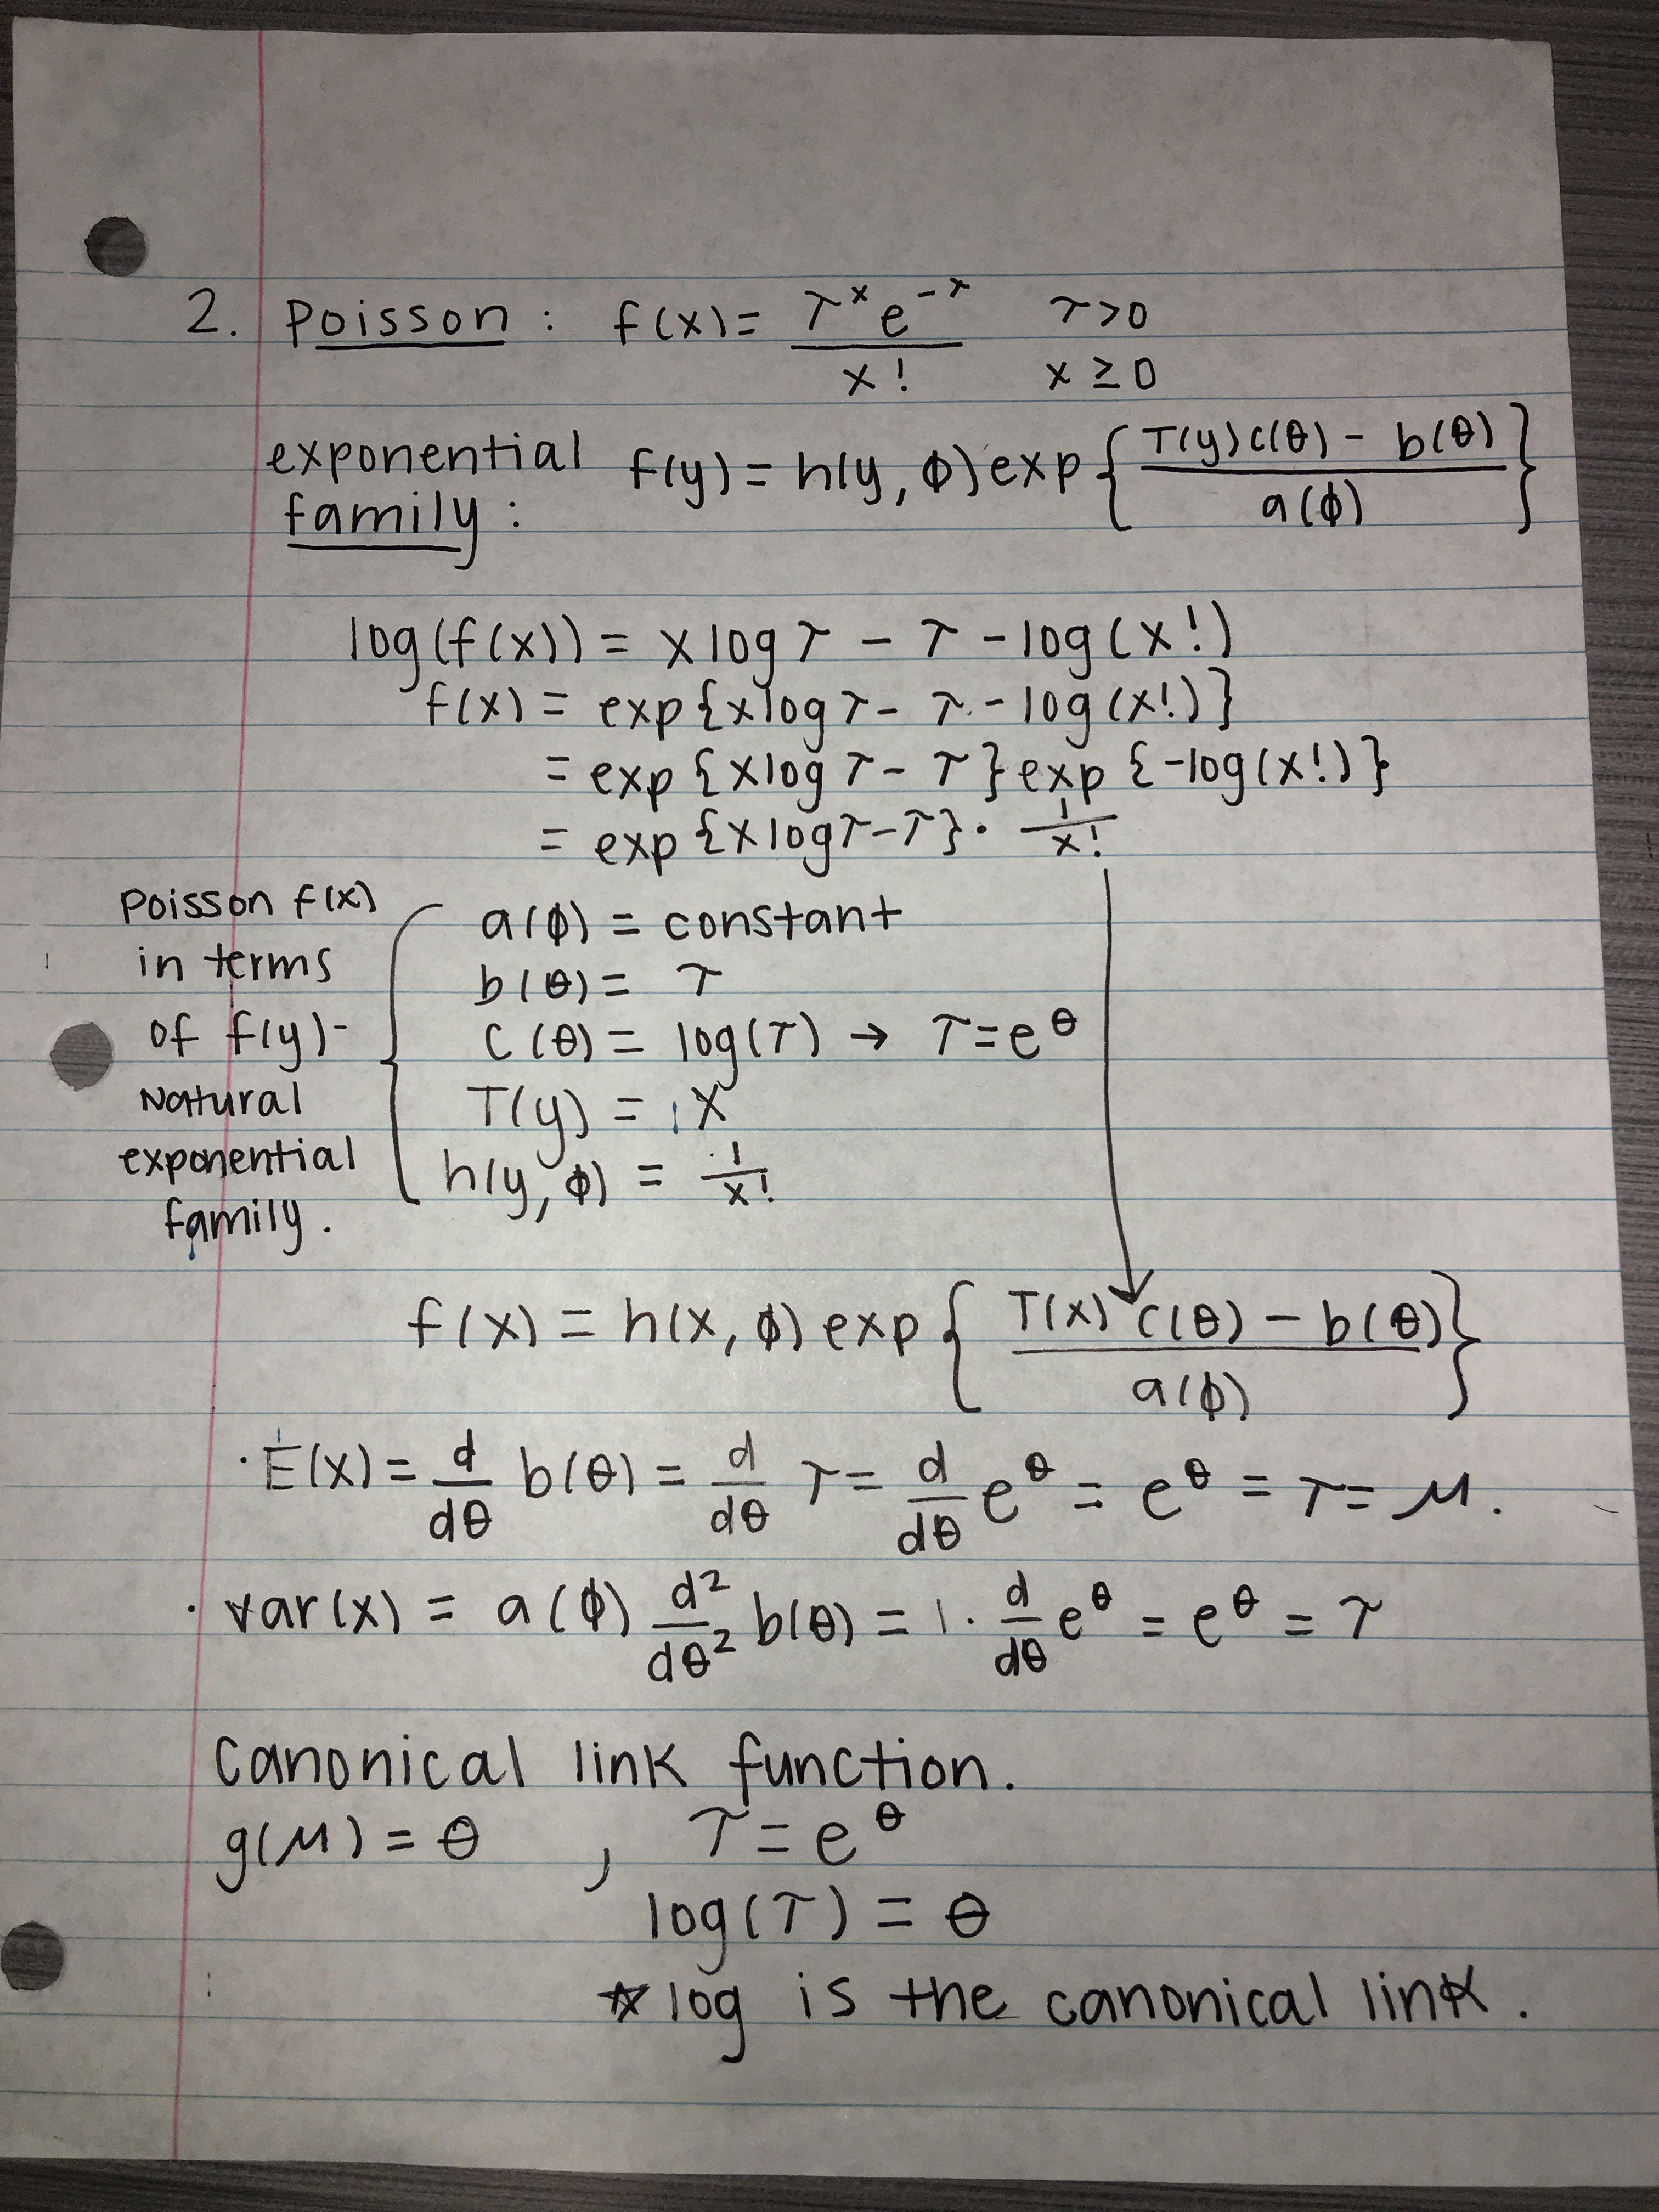 2. Poisson : f(x) = τ^x e^-τ / x!   τ>0
x ≥ 0
exponential family : f(y) = h(y, φ) exp { T(y) c(θ) - b(θ) / a(φ) }
log(f(x)) = x log τ - τ - log(x!)
f(x) = exp{x log τ - τ - log(x!)}
= exp{x log τ - τ} exp{-log(x!)}
= exp{x log τ - τ} · 1/x!
Poisson f(x)
in terms
of f(y) -
Natural
exponential
family.
a(φ) = constant
b(θ) = τ
c(θ) = log(τ) → τ = e^θ
T(y) = x
h(y, φ) = 1/x!
f(x) = h(x, φ) exp { T(x) c(θ) - b(θ) / a(φ) }
· E(x) = d/dθ b(θ) = d/dθ τ = d/dθ e^θ = e^θ = τ = μ.
· var(x) = a(φ) d²/dθ² b(θ) = 1 · d/dθ e^θ = e^θ = τ
canonical link function.
g(μ) = θ , τ = e^θ
log(τ) = θ
☆ log is the canonical link.